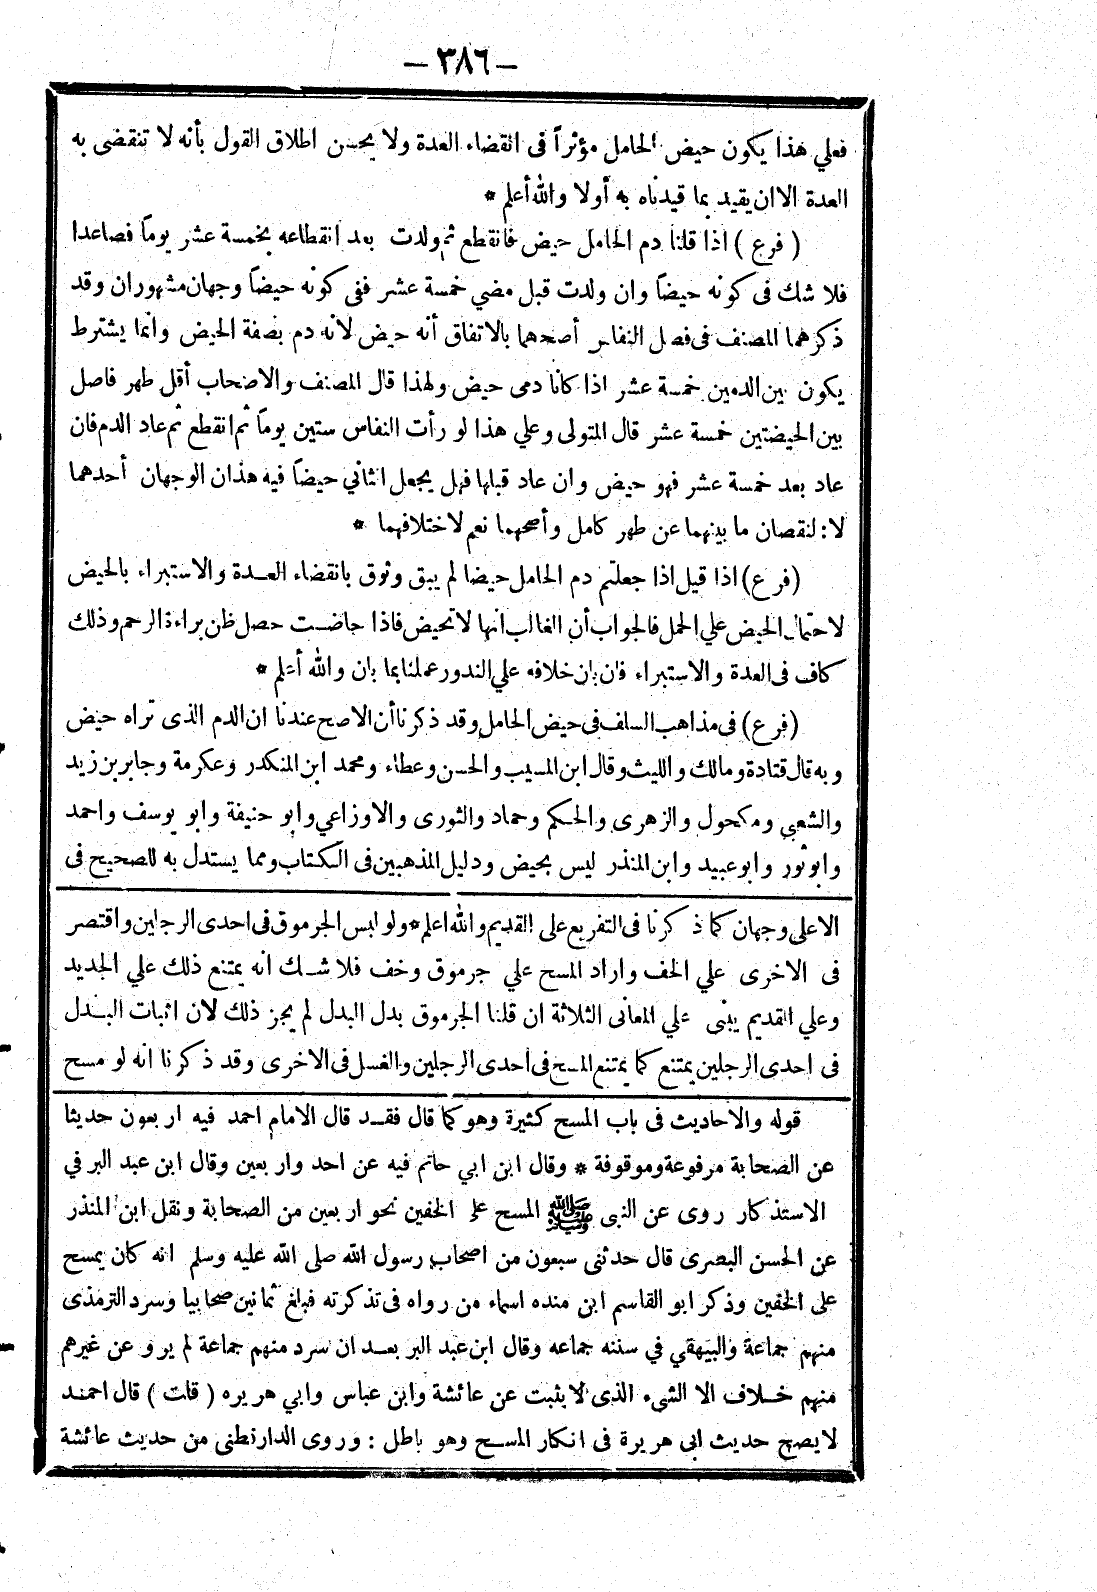 — ٣٨٦ —
فعلي هذا يكون حيض الحامل مؤثراً فى انقضاء العدة ولا يحسن اطلاق القول بأنه لا تنقضى به
العدة الا ان يقيد بما قيدناه به أولا والله أعلم *
( فرع ) اذا قلنا دم الحامل حيض فانقطع ثم ولدت بعد انقطاعه بخمسة عشر يوماً فصاعدا
فلا شك فى كونه حيضاً وان ولدت قبل مضي خمسة عشر ففى كونه حيضاً وجهان مشهوران وقد
ذكرهما المصنف فى فصل النفاس أصحهما بالاتفاق أنه حيض لانه دم بصفة الحيض وانما يشترط
يكون بين الدمين خمسة عشر اذا كانا دمى حيض ولهذا قال المصنف والاصحاب أقل طهر فاصل
بين الحيضتين خمسة عشر قال المتولى وعلي هذا لو رأت النفاس ستين يوماً ثم انقطع ثم عاد الدم فان
عاد بعد خمسة عشر فهو حيض وان عاد قبلها فهل يجعل الثاني حيضاً فيه هذان الوجهان أحدهما
لا: لنقصان ما بينهما عن طهر كامل وأصحهما نعم لاختلافهما *
(فرع) اذا قيل اذا جعلتم دم الحامل حيضا لم يبق وثوق بانقضاء العدة والاستبراء بالحيض
لاحتمال الحيض علي الحمل فالجواب أن الغالب انها لا تحيض فاذا حاضت حصل ظن براءة الرحم وذلك
كاف فى العدة والاستبراء فان بان خلافه علي الندور عملنا بما بان والله أعلم *
(فرع) فى مذاهب السلف فى حيض الحامل وقد ذكرنا أن الاصح عندنا ان الدم الذى تراه حيض
وبه قال قتادة ومالك والليث وقال ابن المسيب والحسن وعطاء ومحمد ابن المنكدر وعكرمة وجابر بن زيد
والشعبي ومكحول والزهرى والحكم وحماد والثورى والاوزاعي وابو حنيفة وابو يوسف واحمد
وابو ثور وابو عبيد وابن المنذر ليس بحيض ودليل المذهبين فى الكتاب ومما يستدل به للصحيح فى
الاعلى وجهان كما ذكرنا فى التفريع على القديم والله اعلم * ولو لبس الجرموق فى احدى الرجلين واقتصر
فى الاخرى علي الخف واراد المسح علي جرموق وخف فلا شك انه يمتنع ذلك علي الجديد
وعلي القديم يبنى علي المعانى الثلاثة ان قلنا الجرموق بدل البدل لم يجز ذلك لان اثبات البدل
فى احدى الرجلين يمتنع كما يمتنع المسح فى أحدى الرجلين والغسل فى الاخرى وقد ذكرنا انه لو مسح
قوله والاحاديث فى باب المسح كثيرة وهو كما قال فقد قال الامام احمد فيه اربعون حديثا
عن الصحابة مرفوعة وموقوفة * وقال ابن ابي حاتم فيه عن احد واربعين وقال ابن عبد البر في
الاستذكار روى عن النبى ﷺ المسح على الخفين نحو اربعين من الصحابة ونقل ابن المنذر
عن الحسن البصرى قال حدثنى سبعون من اصحاب رسول الله صلى الله عليه وسلم انه كان يمسح
على الخفين وذكر ابو القاسم ابن منده اسماء من رواه فى تذكرته فبلغ ثمانين صحابيا وسرد الترمذى
منهم جماعة والبيهقي في سننه جماعه وقال ابن عبد البر بعد ان سرد منهم جماعة لم يرو عن غيرهم
منهم خلاف الا الشىء الذى لا يثبت عن عائشة وابن عباس وابي هريره ( قلت ) قال احمد
لا يصح حديث ابى هريرة فى انكار المسح وهو باطل : وروى الدارقطنى من حديث عائشة